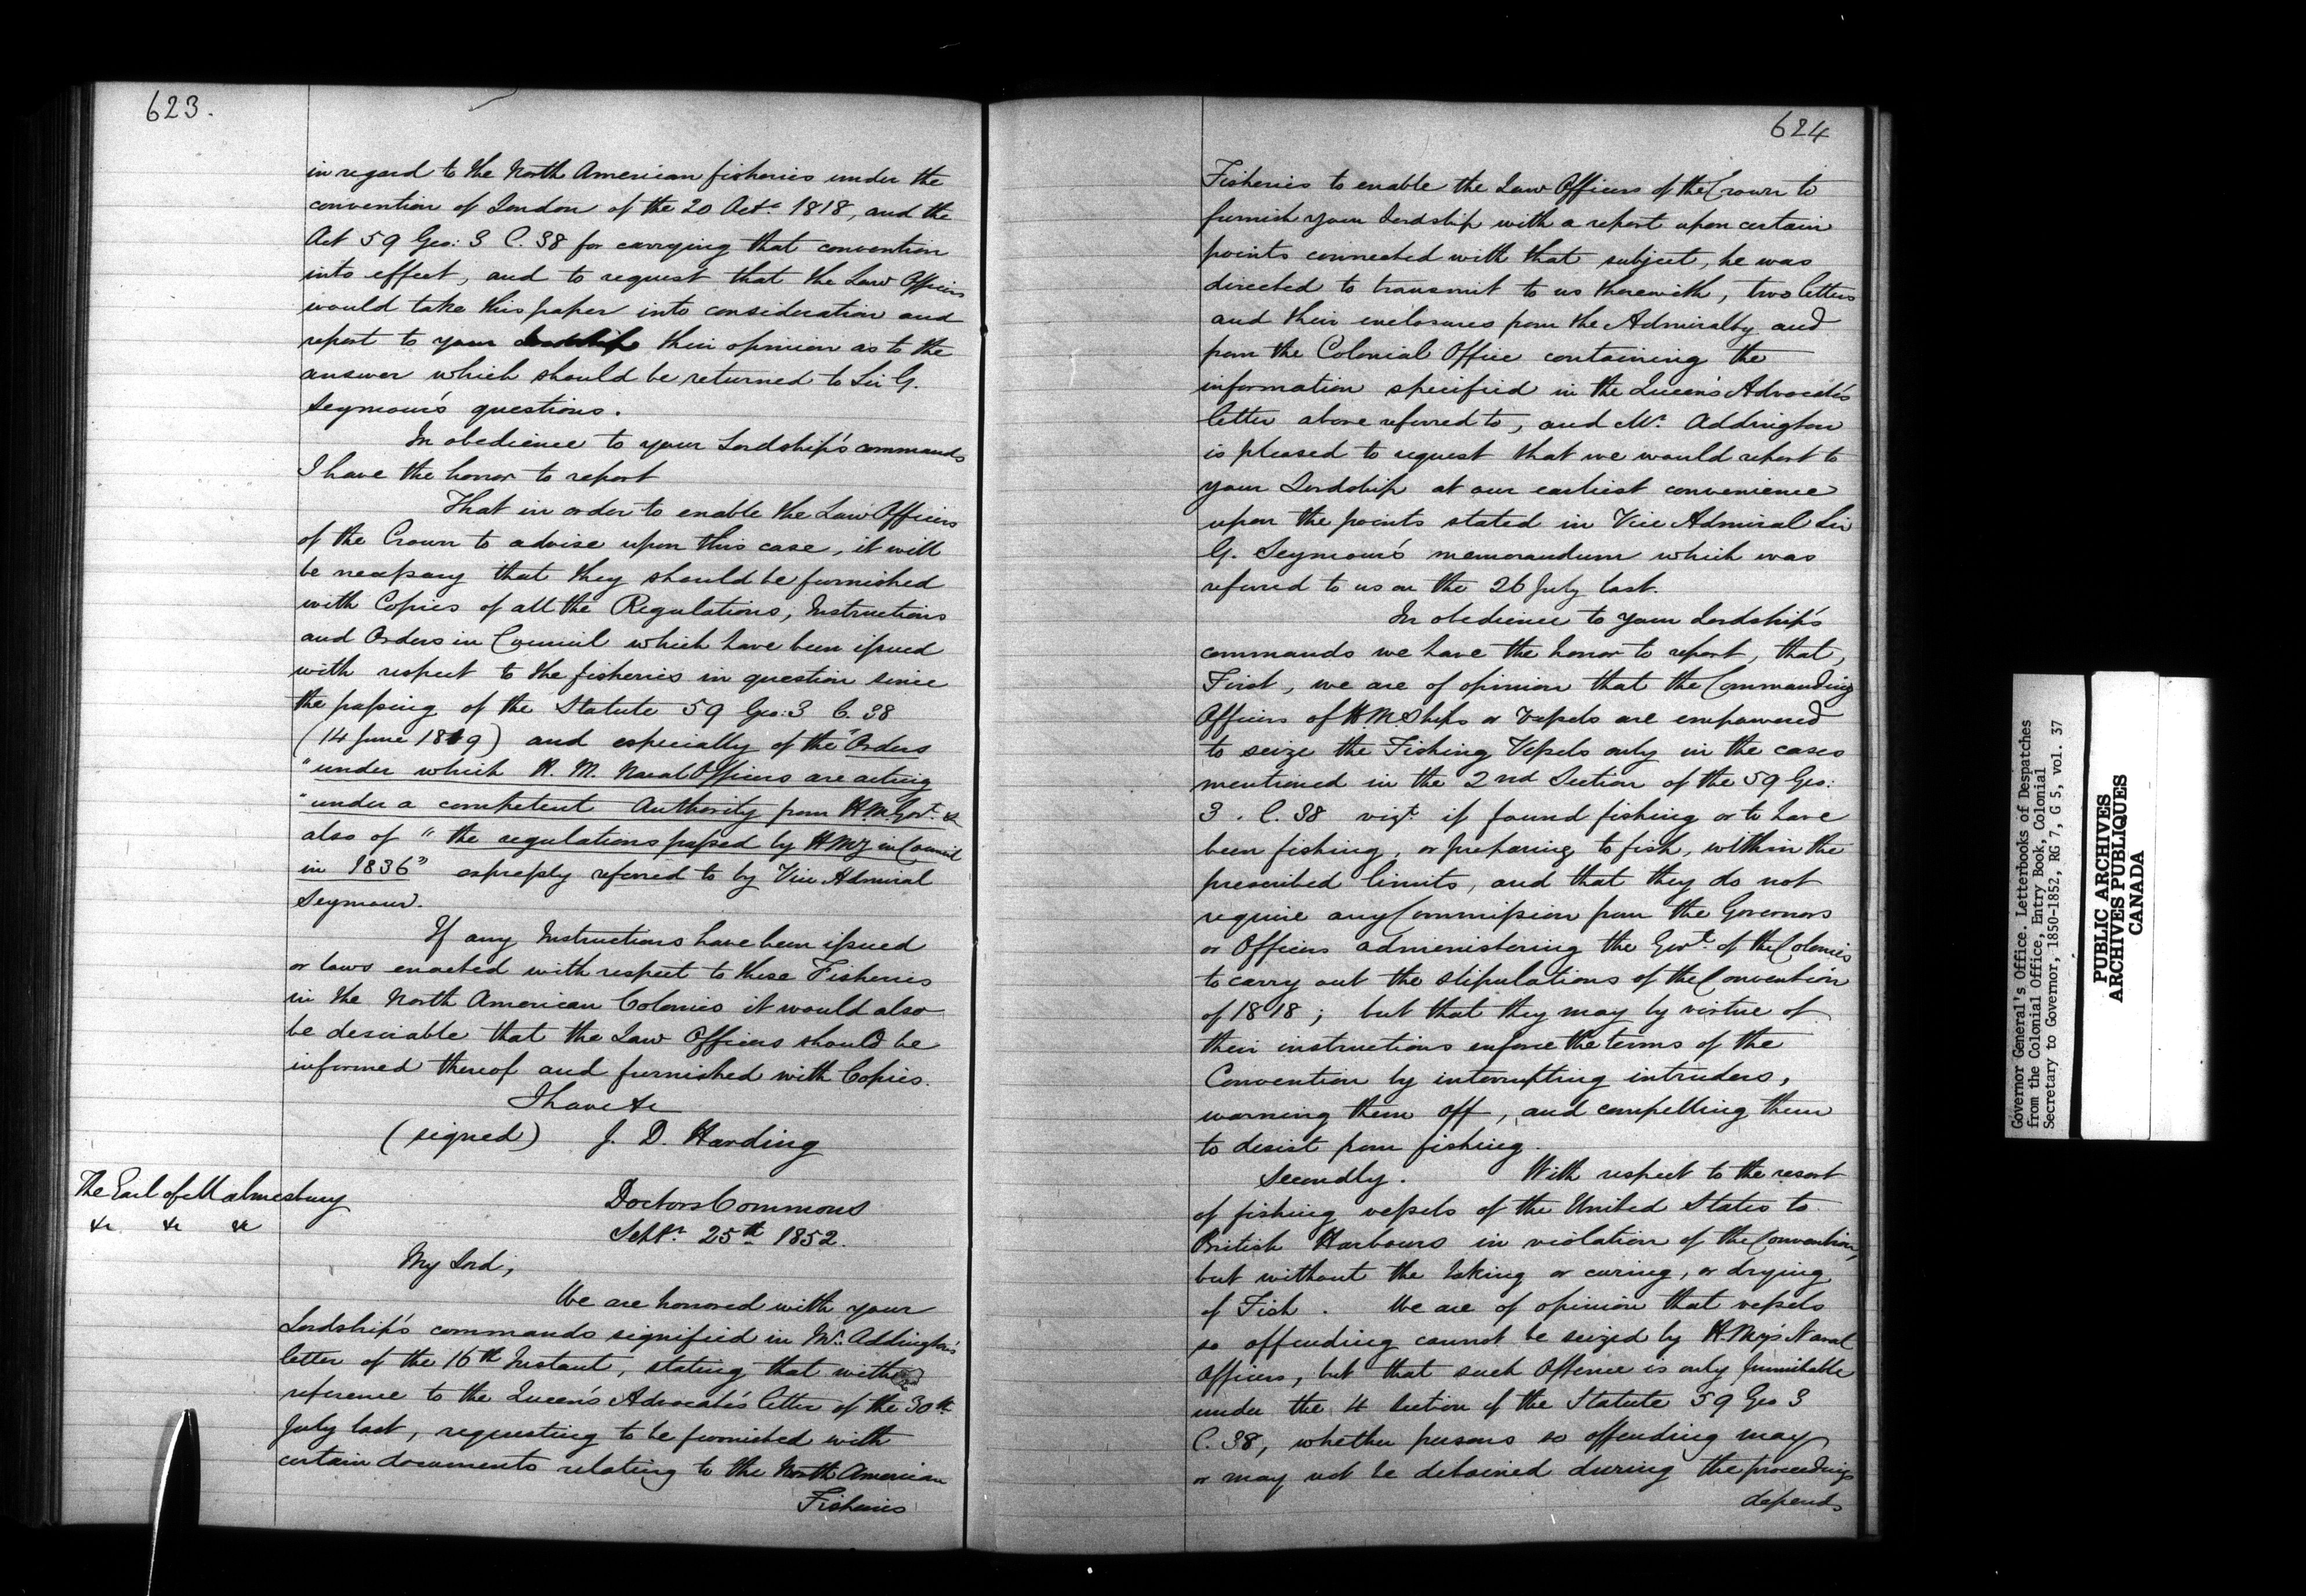 623.
in regard to the North American fisheries under the
convention of London of the 20 Octr. 1818, and the
Act 59 Geo: 3 C. 38 for carrying that convention
into effect, and to request that the Law Officers
would take this paper into consideration and
report to your Lordship their opinion as to the
answer which should be returned to Sir G.
Seymour's questions.
In obedience to your Lordship's commands
I have the honor to report
That in order to enable the Law Officers
of the Crown to advise upon this case, it will
be necessary that they should be furnished
with Copies of all the Regulations, Instructions
and Orders in Council which have been issued
with respect to the fisheries in question since
the passing of the Statute 59 Geo: 3 C. 38
(14 June 1819) and especially of the "Orders
"under which H. M. Naval Officers are acting
"under a competent Authority from H.M. Govt. &
also of "the regulations passed by HMy in Council
in 1836" expressly referred to by Vice Admiral
Seymour.
If any Instructions have been issued
or laws enacted with respect to these Fisheries
in the North American Colonies it would also
be desirable that the Law Officers should be
informed thereof and furnished with Copies.
I have &c
(signed) J. D. Harding
The Earl of Malmesbury
&c &c &c
Doctors Commons
Septr. 25th 1852.
My Lord,
We are honored with your
Lordship's commands signified in Mr. Addington's
letter of the 16th Instant, stating that with
reference to the Queen's Advocate's letter of the 30th
July last, requesting to be furnished with
certain documents relating to the North American
Fisheries
624
Fisheries to enable the Law Officers of the Crown to
furnish your Lordship with a report upon certain
points connected with that subject, he was
directed to transmit to us therewith, two letters
and their enclosures from the Admiralty and
from the Colonial Office containing the
information specified in the Queen's Advocate's
letter above referred to, and Mr. Addington
is pleased to request that we would report to
your Lordship at our earliest convenience
upon the points stated in Vice Admiral Sir
G. Seymour's memorandum which was
referred to us on the 26 July last.
In obedience to your Lordship's
commands we have the honor to report, that,
First, we are of opinion that the Commanding
Officers of HM Ships or Vessels are empowered
to seize the Fishing Vessels only in the cases
mentioned in the 2nd Section of the 59 Geo:
3. C. 38 vizt. if found fishing or to have
been fishing, or preparing to fish, within the
prescribed limits, and that they do not
require any Commission from the Governors
or Officers administering the Govt. of the Colonies
to carry out the stipulations of the Convention
of 1818; but that they may by virtue of
their instructions enforce the terms of the
Convention by interrupting intruders,
warning them off, and compelling them
to desist from fishing.
Secondly. With respect to the resort
of fishing vessels of the United States to
British Harbours in violation of the Convention,
but without the taking or curing, or drying
of Fish. We are of opinion that vessels
so offending cannot be seized by H. My's Naval
Officers, but that such Offence is only punishable
under the 4 Section of the Statute 59 Geo 3
C. 38, whether persons so offending may
or may not be detained during the proceedings
depends
Governor General's Office. Letterbooks of Despatches
from the Colonial Office, Entry Book, Colonial
Secretary to Governor, 1850-1852, RG 7, G 5, vol. 37
PUBLIC ARCHIVES
ARCHIVES PUBLIQUES
CANADA